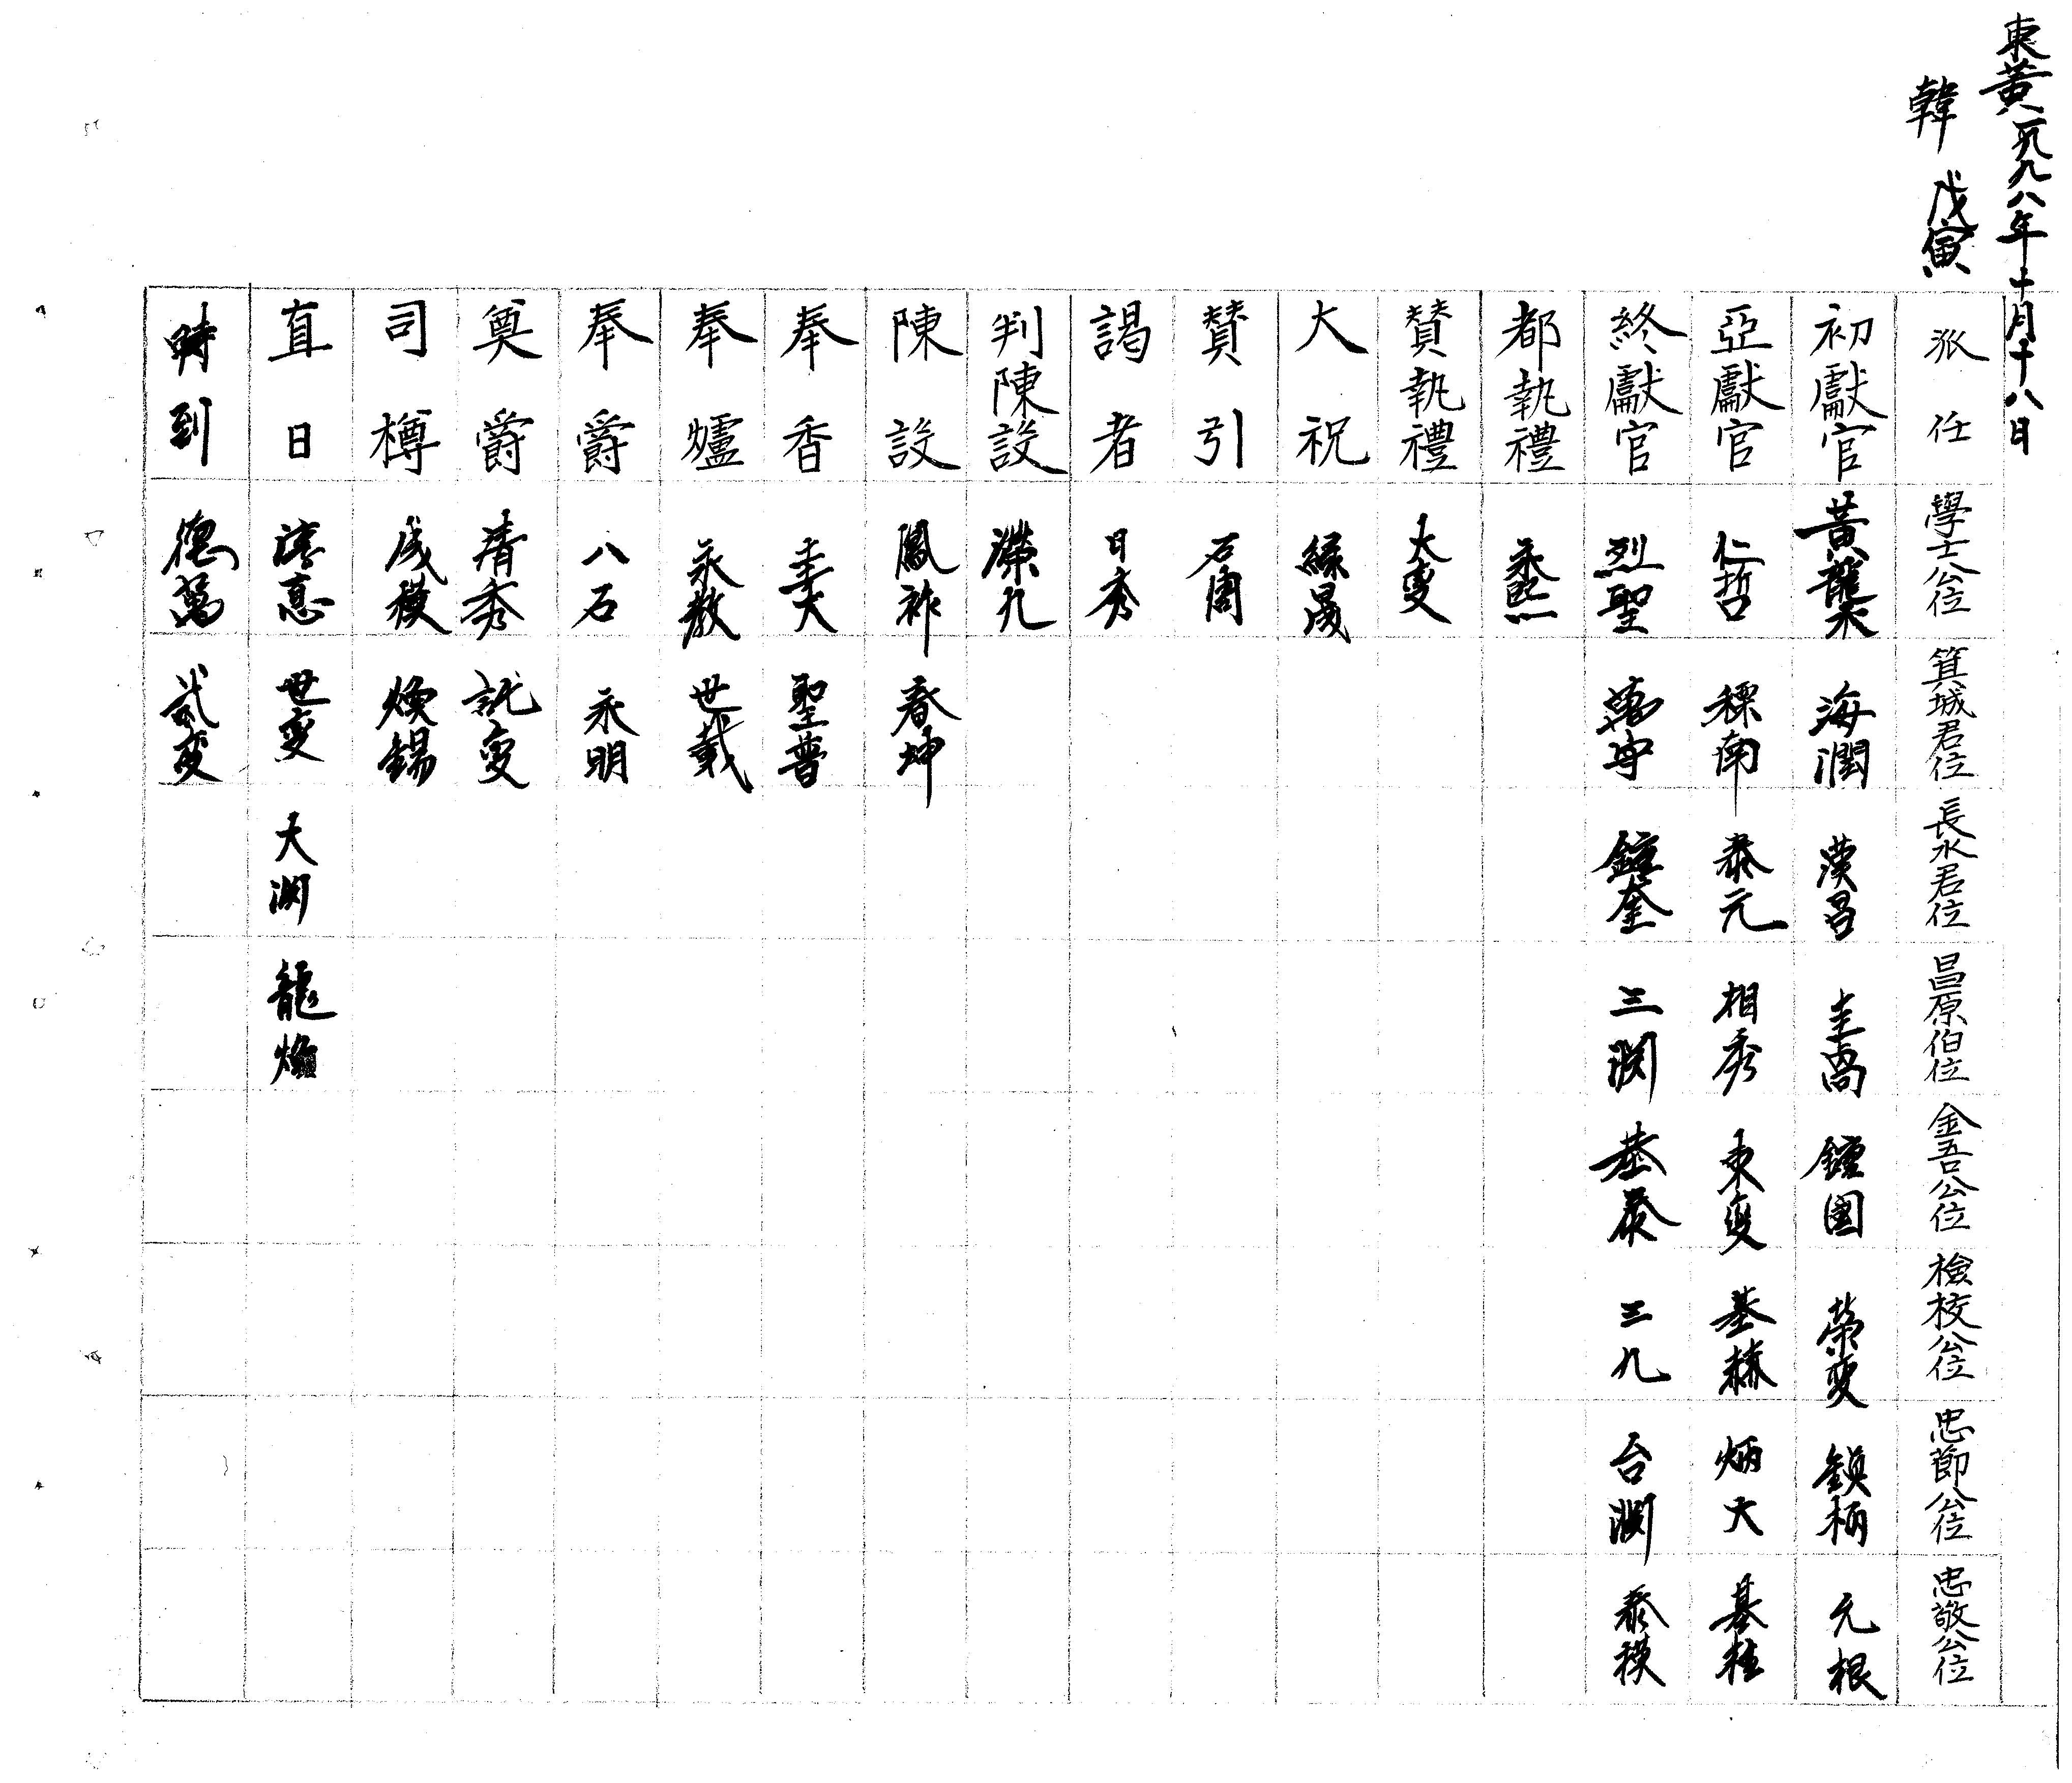 東黃 一九九八年十月十八日
韓 戊寅
派任 學士公位 箕城君位 長水君位 昌原伯位 金吾公位 檢校公位 忠節公位 忠敬公位
初獻官 黃龍 海潤 漢昌 圭 鍾國 榮燮 鎮柄 元根
亞獻官 仁哲 南 泰元 相秀 東燮 基 炳大 基柱
終獻官 烈聖 鍾奎 三淵 基泰 三九 台淵 泰模
都執禮 永熙
贊執禮 大燮
大祝 晟
贊引 石
謁者 日秀
判陳設 榮九
陳設 鳳祚 春坤
奉香 圭大 聖普
奉爐 永教 世載
奉爵 八石 永明
奠爵 清秀 燮
司樽 成模 煥錫
直日 世燮 大淵 龍
時到 德萬 燮